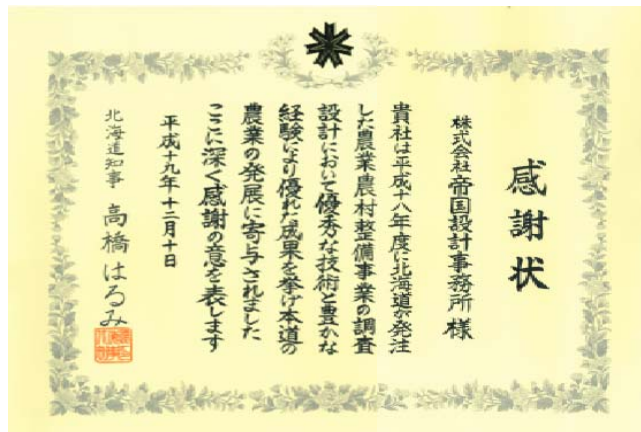 感謝状
株式会社帝国設計事務所 様
貴社は平成十八年度に北海道が発注
した農業農村整備事業の調査
設計において優秀な技術と豊かな
経験により優れた成果を挙げ本道の
農業の発展に寄与されました
ここに深く感謝の意を表します
平成十九年十二月十日
北海道知事 高橋はるみ